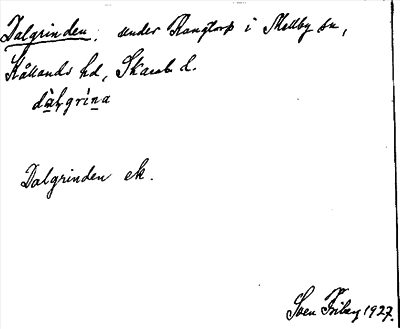 Dalgrinden; under Rangtorp i Skalby sn,
Kållands hd, Skarab. l.
dà̀lgrı̀na
Dalgrinden ek.
Sven Friberg 1927.